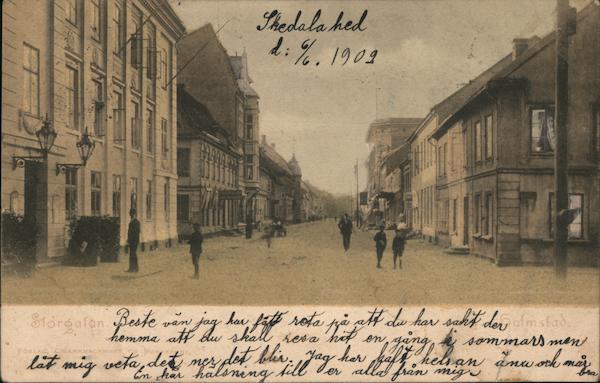 Skedala hed
d: 6/6. 1902
Storgatan
Halmstad.
Beste vän jag har fått rota på att du har sakt der
hemma att du skall resa hit en gång i sommarsmen
låt mig veta det ner det blir. Jag har haft helsan änu och mår bra
En kär halsning till er alla från mig